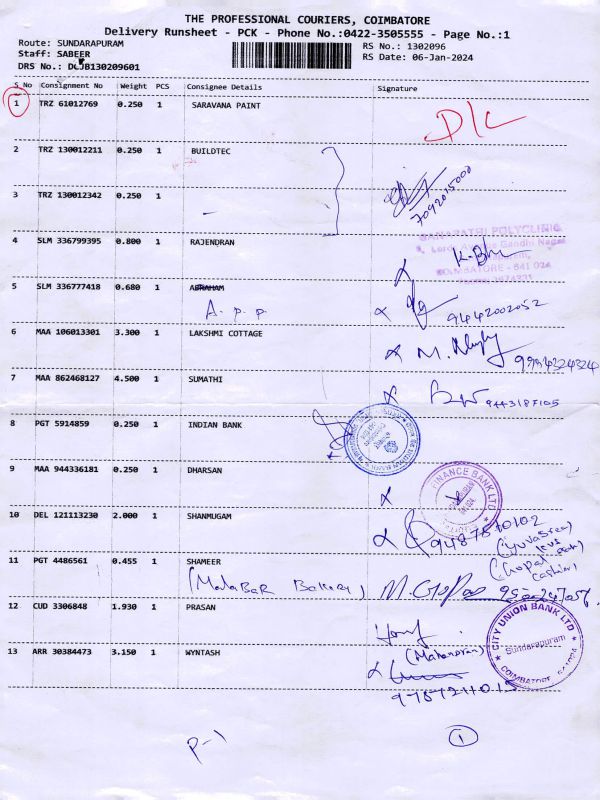 THE PROFESSIONAL COURIERS, COIMBATORE
Delivery Runsheet - PCK - Phone No.:0422-3505555 - Page No.:1
Route: SUNDARAPURAM
Staff: SABEER
DRS No.: DCJB130209601
RS No.: 1302096
RS Date: 06-Jan-2024
S No Consignment No Weight PCS Consignee Details Signature
1 TRZ 61012769 0.250 1 SARAVANA PAINT D/L
2 TRZ 130012211 0.250 1 BUILDTEC
3 TRZ 130012342 0.250 1 7092015000
4 SLM 336799395 0.800 1 RAJENDRAN
COIMBATORE - 641 024
5 SLM 336777418 0.680 1 ABRAHAM
A. p. p 9442002052
6 MAA 106013301 3.300 1 LAKSHMI COTTAGE
7 MAA 862468127 4.500 1 SUMATHI 9443187105
8 PGT 5914859 0.250 1 INDIAN BANK
9 MAA 944336181 0.250 1 DHARSAN
FINANCE BANK LTD
10 DEL 121113230 2.000 1 SHANMUGAM 9487570102
11 PGT 4486561 0.455 1 SHAMEER
(Malabar Bakery) M. Gopal
12 CUD 3306848 1.930 1 PRASAN
CITY UNION BANK LTD
Sundarapuram
13 ARR 30384473 3.150 1 WYNTASH
P-1
1